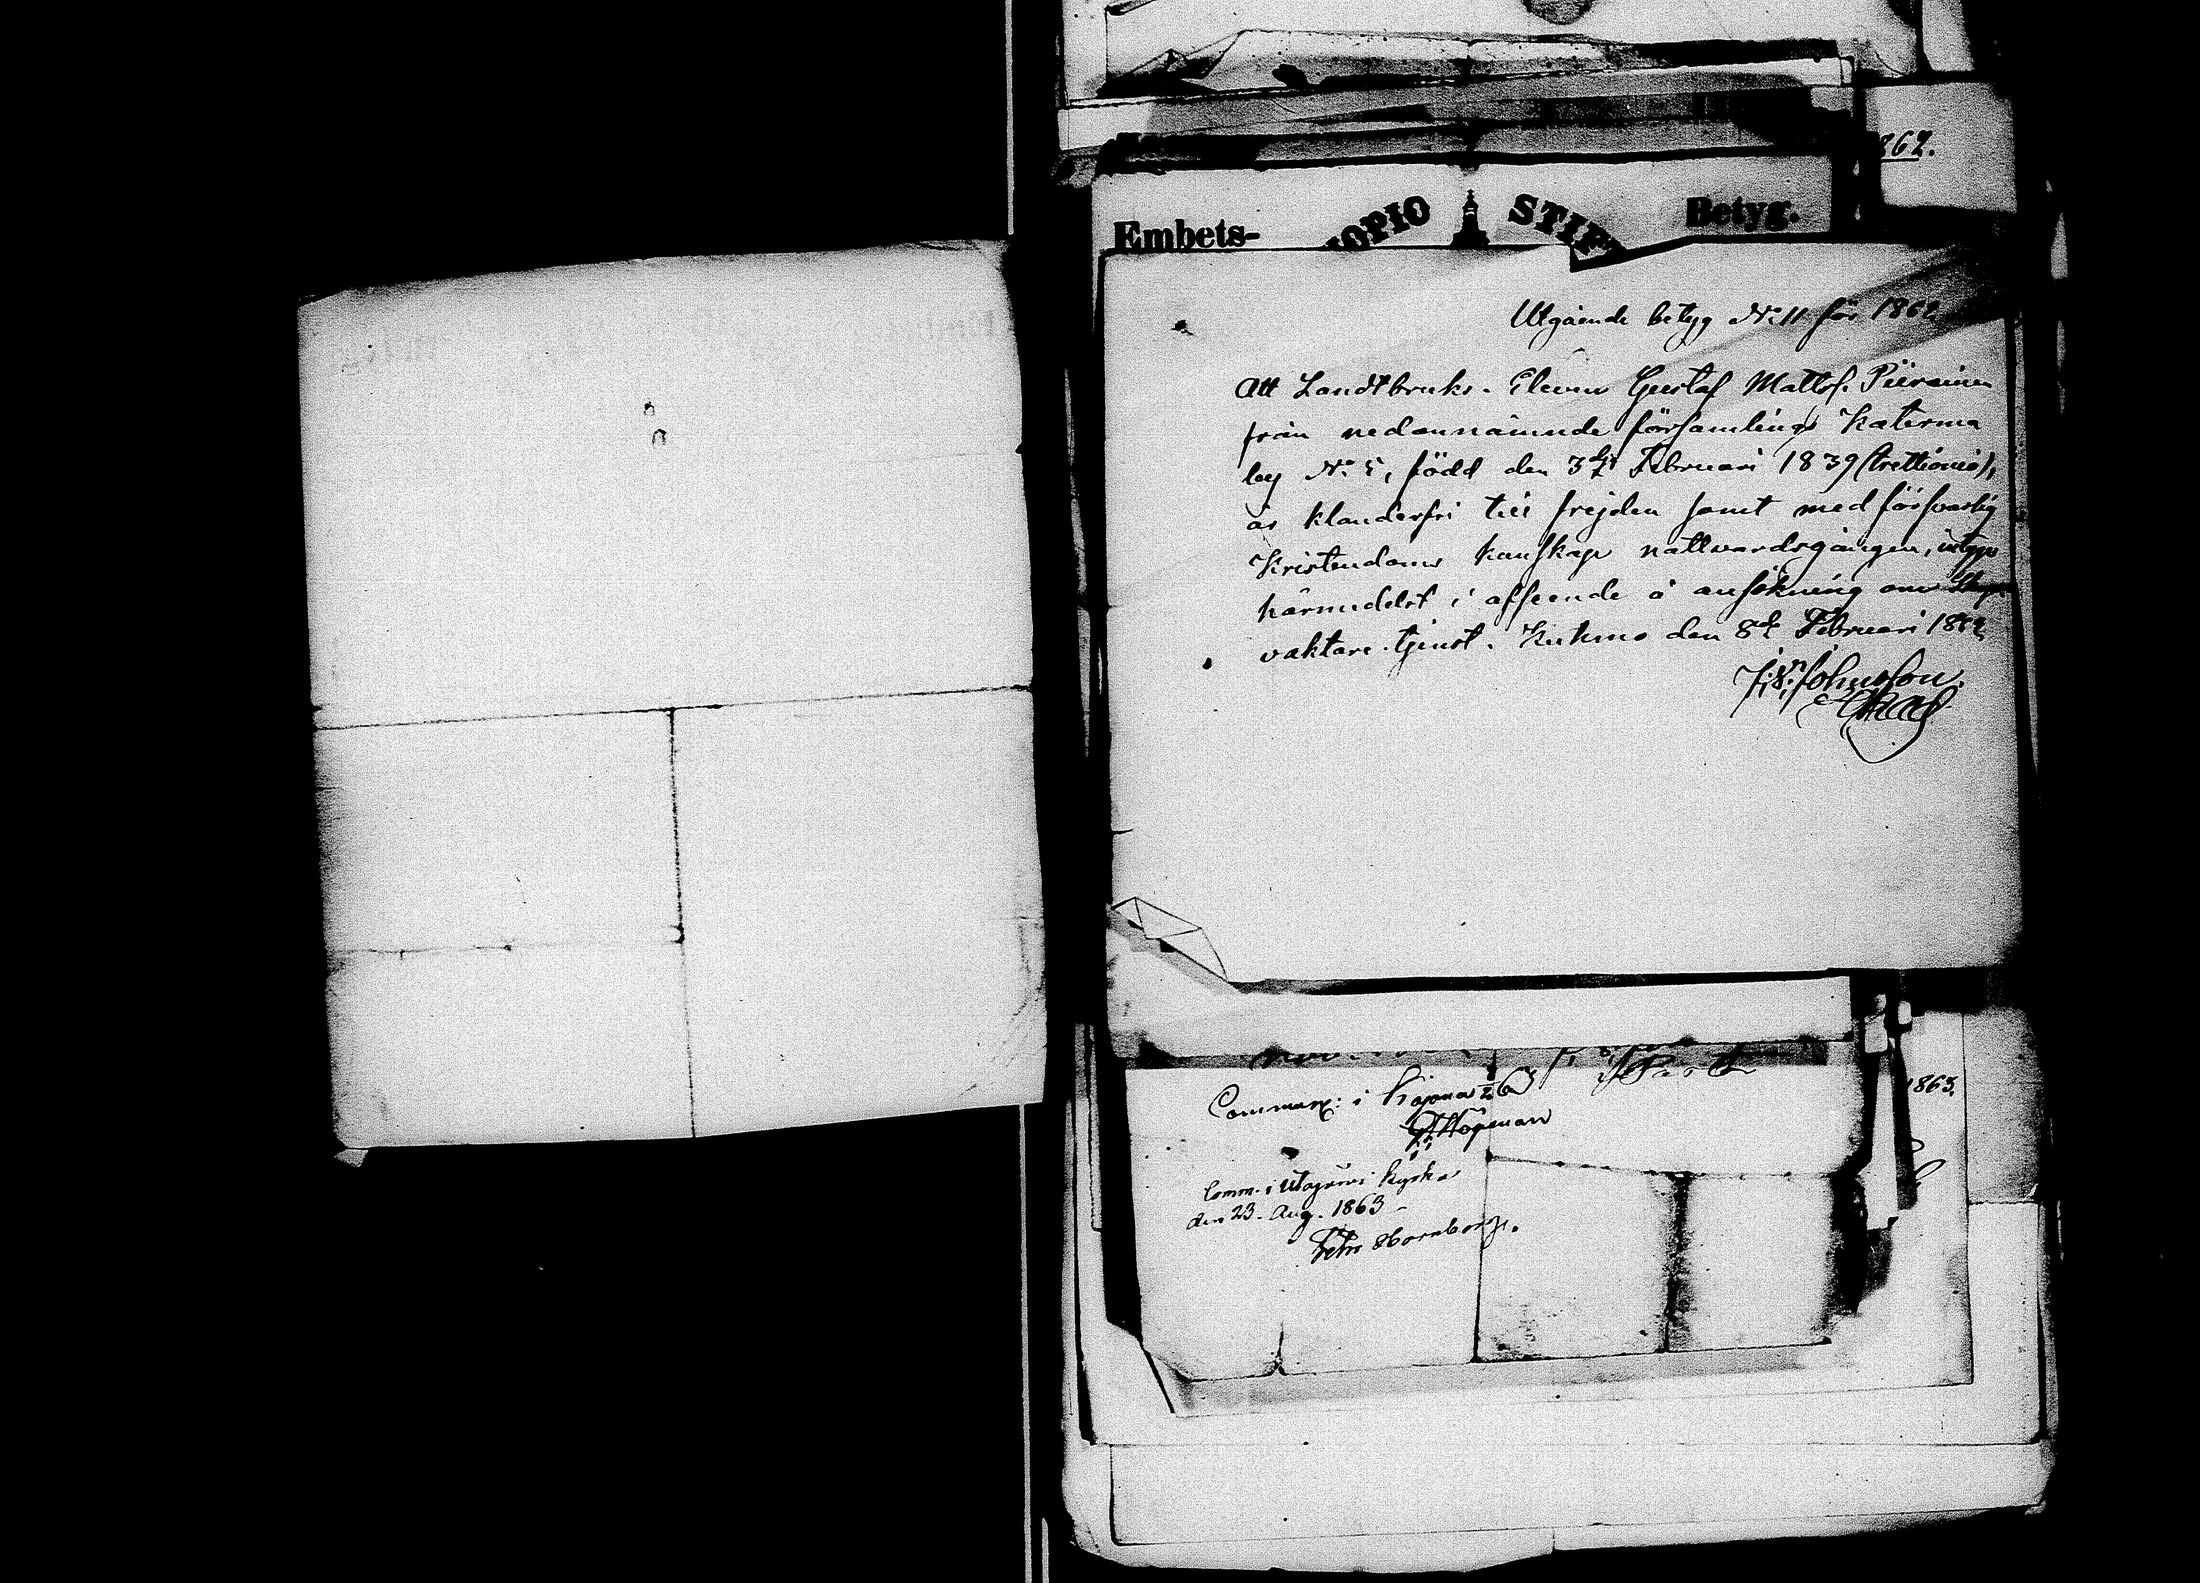 262.
Embets- OPIO STIF Betyg.
Utgående betyg No 11 för 1862
Att Landtbruks-Eleven Gustaf Mattsf. Piirainen
från nedannämnde församlings Katerma
by No 5, född den 3dje Februari 1839 (trettionio),
är klanderfri till frejden samt med försvarlig
Kristendoms kunskap nattvardsgången, intygar
härmedelst i afseende å ansökning om
vaktare-tjenst. Kuhmo den 8de Februari 1862
Johnsson.
Commun: i Kajana
Höpenar
Comm. i Utajärvi kyrka
den 23. Aug. 1863
Petr Stornborg.
1863.